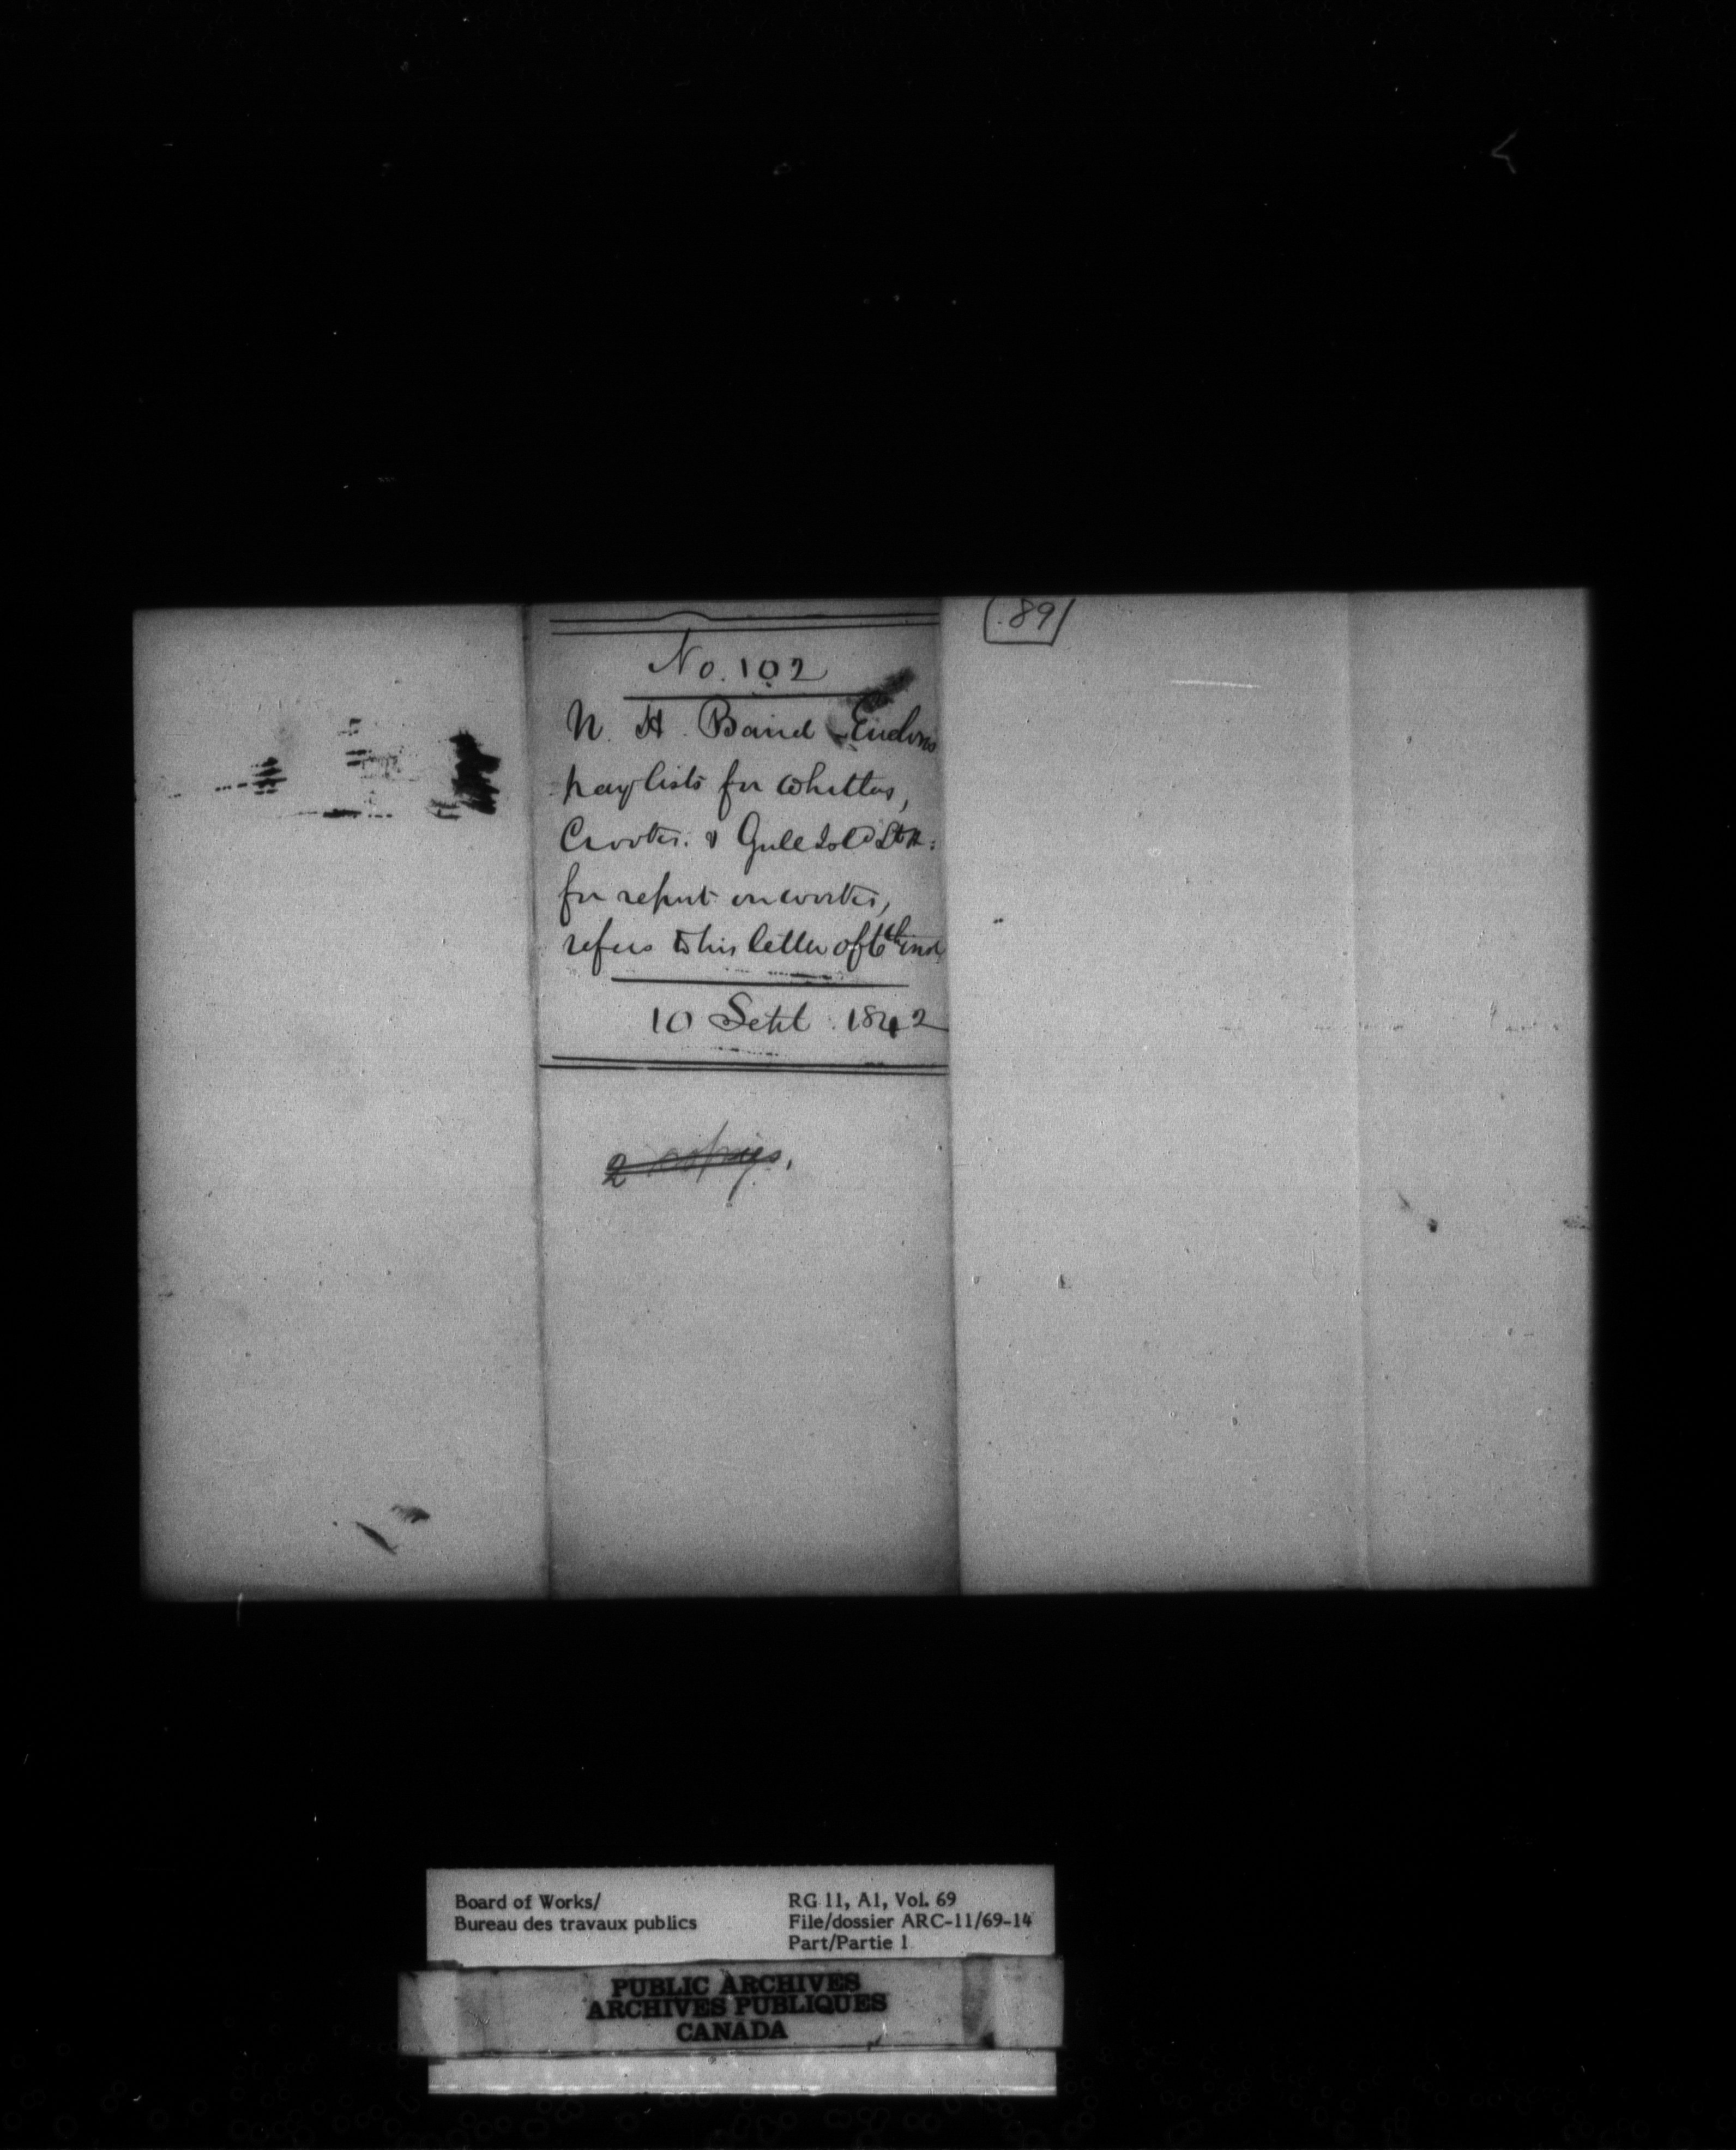 89
No. 102
N. H. Baird Encloses
paylists for Whittlas,
Crookes. & Gull
for report on works,
refers to his letter of 6th inst
10 Sept. 1842
2 copies.
Board of Works/
Bureau des travaux publics
RG 11, A1, Vol. 69
File/dossier ARC-11/69-14
Part/Partie 1
PUBLIC ARCHIVES
ARCHIVES PUBLIQUES
CANADA